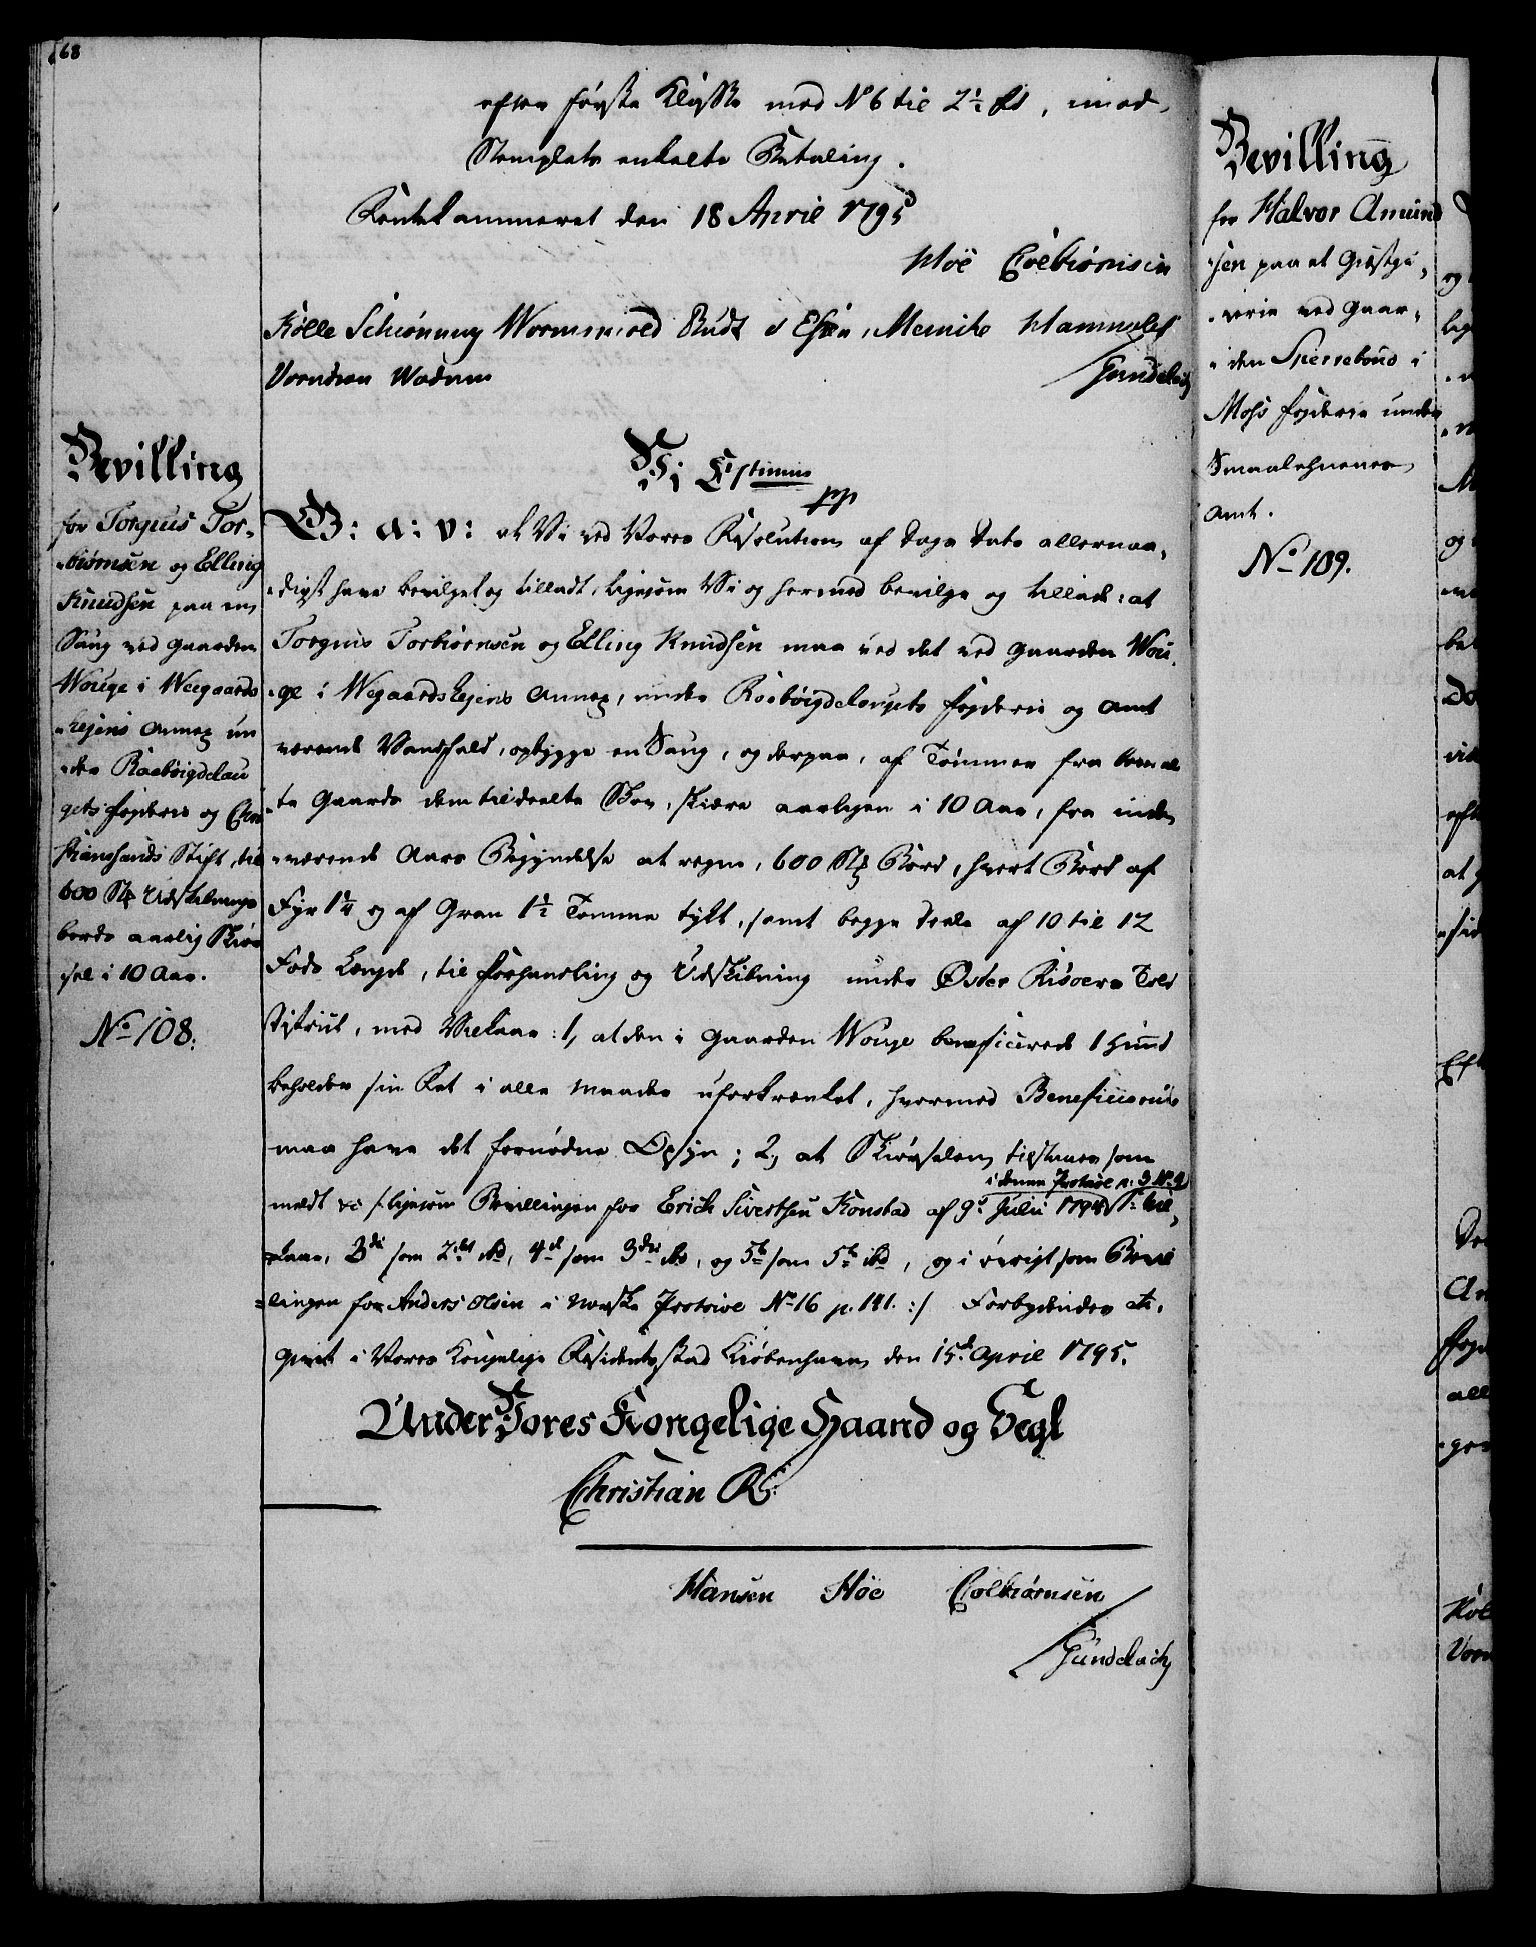 68
efter første Klasse med No 6 til 2½ rd, imod
Stemplets enkelte Betaling.
Rentekammeret den 18 April 1795
Höe Colbiörnsen
Kölle Schiönning Wormskiold Rudt Essen, Meinike Hammeleff
Vorndran Wadum
Gundelach
Bevilling
for Torgius Tor-
biörnsen og Elling
Knudsen paa en
Saug ved Gaarden
Wouge i Weegaards
heiens Annex un
der Raabøigdelau
gets fogderie og Chri
stiansands Stift, til
600 Stk Udskibnings
bords aarlig Skiør
sel i 10 Aar.
No 108.
Vi Christian
pp
G: A: V: at Vi ved Vores Resolution af Dags Dato allernaa-
digst have bevilget og tilladt, ligesom Vi og hermed bevilge og tillade: at
Torgius Torbiörnsen og Elling Knudsen maa ved det ved Gaarden Wou-
ge i Wegaardsheiens Annex, under Raabøigdelaugets fogderie og Amt
værende Vandfald, opbygge en Saug, og derpaa, af Tømmer fra bemel
te Gaards dem tildeelte Skov, skiære aarligen i 10 Aar, fra inde
værende Aars Begyndelse at regne, 600 Stk Bord, hvert Bord af
Fyr 1¼ og af Gran 1½ Tomme tykt, samt begge Deele af 10 til 12
Fods Længde, til Forhandling og Udskibning under Øster Riisøers Told
district, med Vilkaar: 1, at den i Gaarden Wouge beneficerede Hund
beholder sin Ret i alle Maader uforkrænket, hvormed Beneficiarius
maa have det fornødne Opsyn; 2, at Skiørselen tilstaaes som
i denne Protocol p: 3 No 2
meldt &c /: ligesom Bevillingen for Erich Sivertsen Konstad af 9d Julii 1794 1te Vil-
kaar, 3die som 2det ibd, 4de som 3die ibd, og 5te som 5te ibd, og i øvrigt som Bevil
lingen for Anders Olsen i Norske Protocol No 16 p. 141. :/ Forbydendes etc.
Givet i Vores Kongelige Residentzstad Kiøbenhavn den 15d April 1795.
Under Vores Kongelige Haand og Segl
Christian R.
Hansen Höe Colbiörnsen
Gundelach
Bevilling
for Halvor Amund
sen paa et Giæstgi-
verie ved Gaar-
den Sperrebond i
Moss fogderie under
Smaalehnenes
Amt.
No 109.